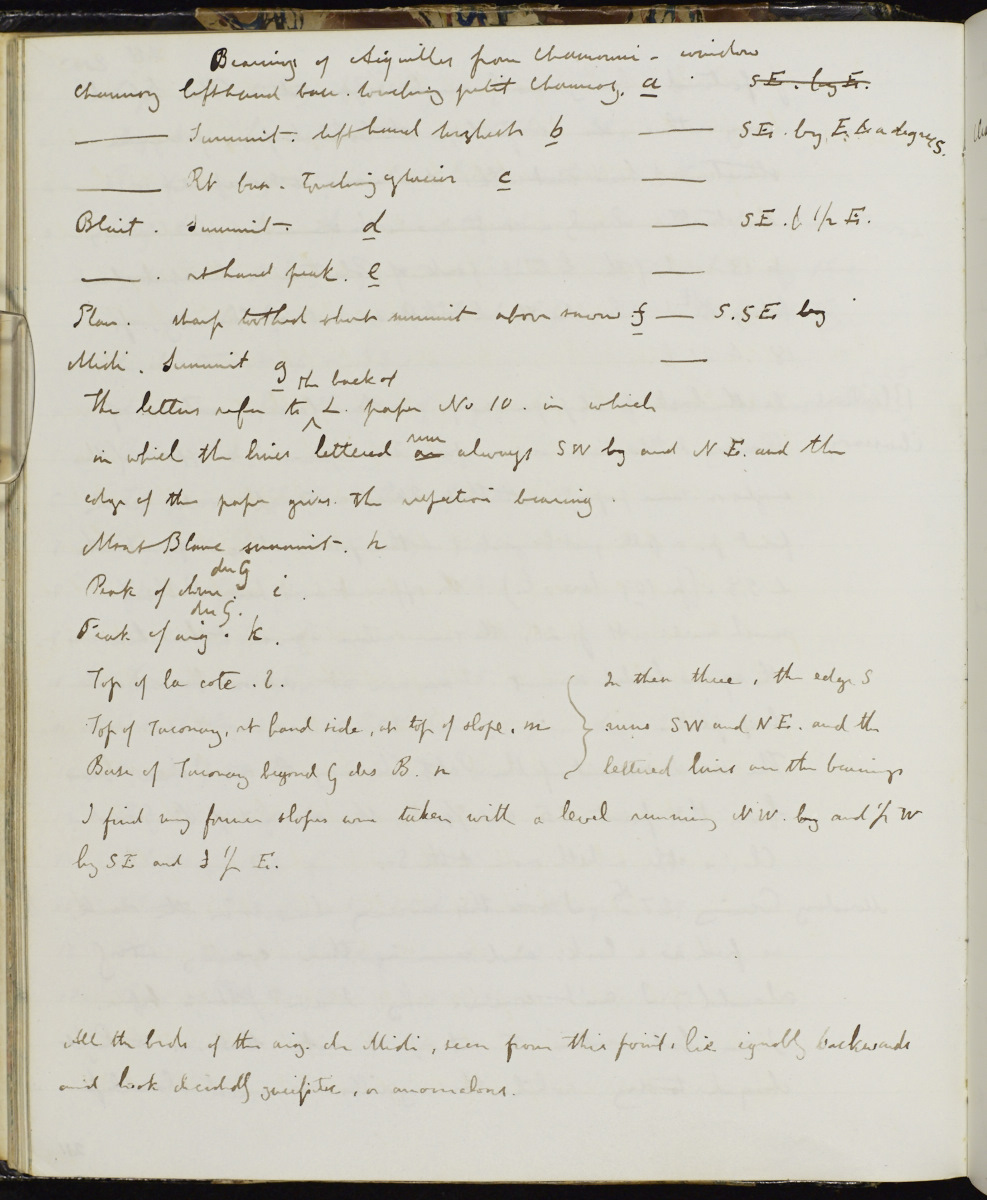 Bearing of Aiguilles from Chamouni - window
Charmoz lefthand base. touching petit Charmoz. a SE. by E.
——— Summit. left hand highest b —— SE. by E, & a degree S.
——— Rt base. Touching glacier c ——
Blait. Summit. d —— SE. & 1/2 E.
——. rt hand peak. e ——
Plan. sharp toothed short summit above snow f —— S. SE. by
Midi. Summit g ——
the back of
The letters refer to L. paper No 10. in which
in which the lines lettered are run always SW by and N E. and the
edge of the paper gives the bearing.
Mont Blanc summit. h
du G
Peak of dome. i.
du G.
Peak of aig. k.
Top of la cote. l. In these three, the edge S
Top of Taconay, rt hand side, at top of slope, m runs SW and NE. and the
Base of Taconay beyond G des B. n lettered lines are the bearings
I find my former slopes were taken with a level running NW. by and 1/2 W
by SE and 1/2 E.
All the beds of the aig. du Midi, seen from this point, lie equally backwards
and look decidedly, or anomalous.